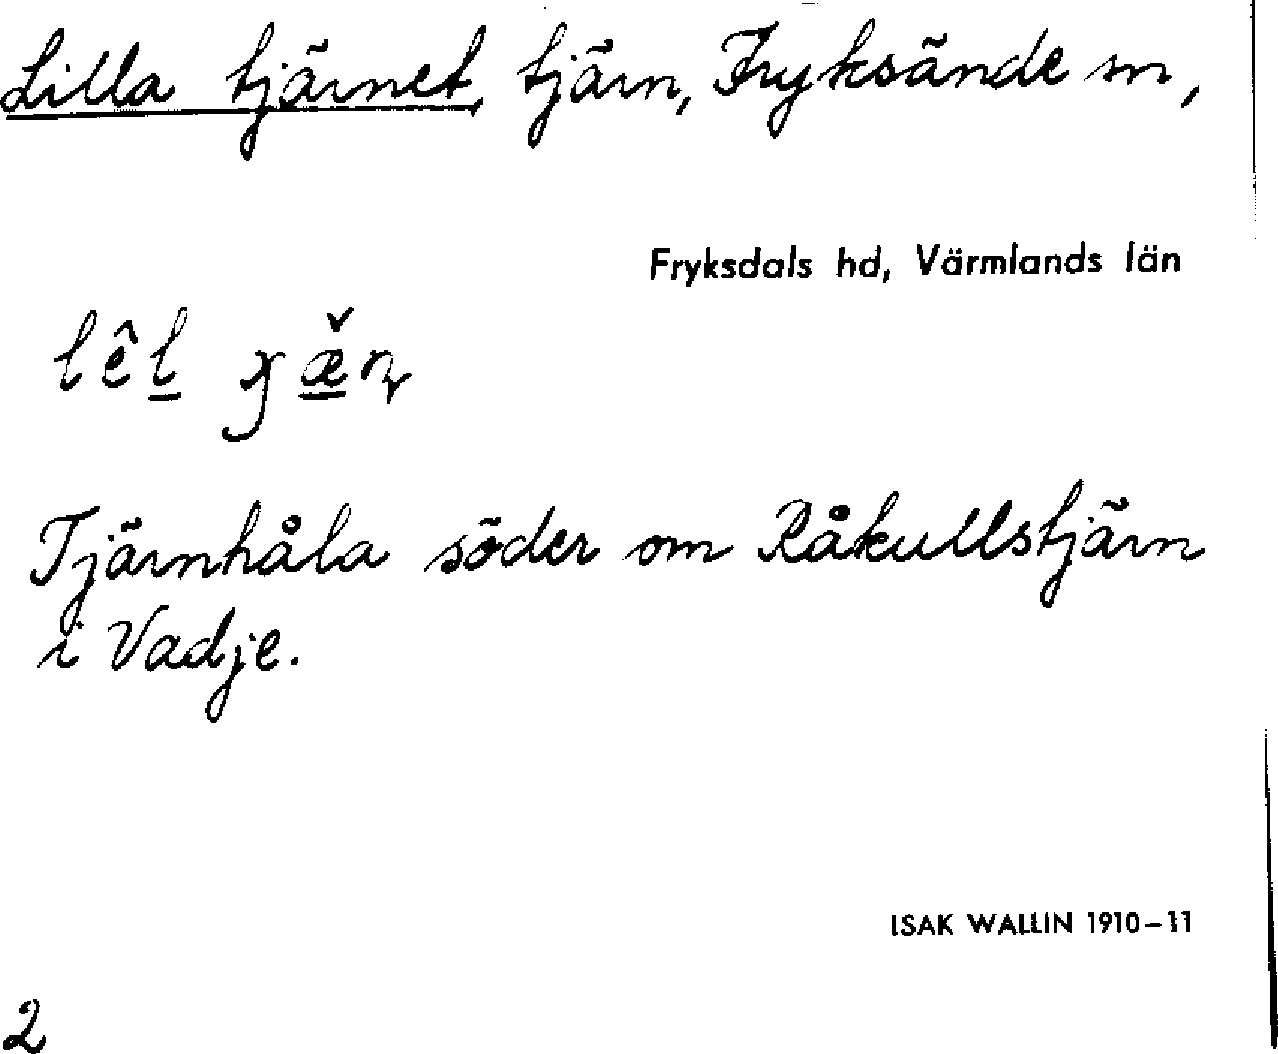 Lilla tjärnet, tjärn, Fryksände sn,
Fryksdals hd, Värmlands län
Tjärnhåla söder om Råkullstjärn
i Vadje.
ISAK WALLIN 1910-11
2